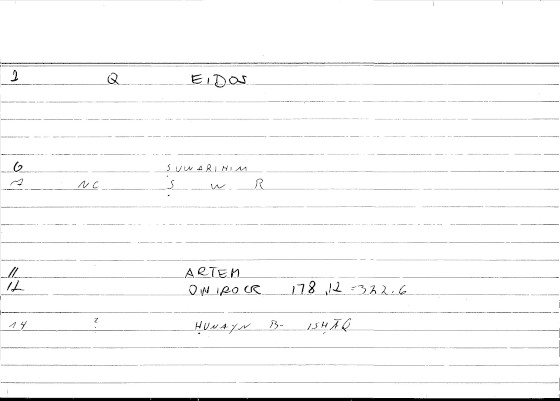 1 Q EIDOS
6 ṢUWARIHIM
7 NC Ṣ W R
11 ARTEM
12 ONIROCR 178,12 = 322.6
14 ? ḤUNAYN B- ISḤĀQ